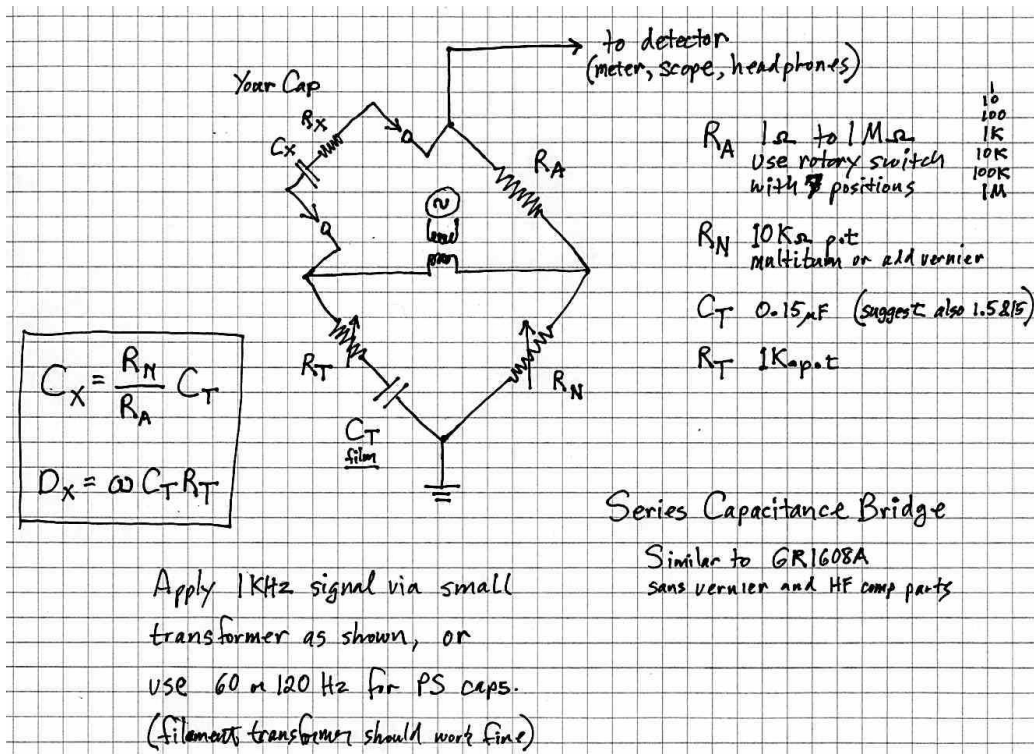 to detector
(meter, scope, headphones)
Your Cap
Rx
Cx
RA
RA 1Ω to 1MΩ
use rotary switch
with 7 positions
1
10
100
1K
10K
100K
1M
RN 10KΩ pot
multiturn or add vernier
CT 0.15μF (suggest also 1.5&15)
RT 1K pot
RT
CT
film
RN
CX = RN/RA CT
DX = ω CT RT
Series Capacitance Bridge
Similar to GR1608A
sans vernier and HF comp parts
Apply 1KHz signal via small
transformer as shown, or
use 60 or 120 Hz for PS caps.
(filament transformer should work fine)